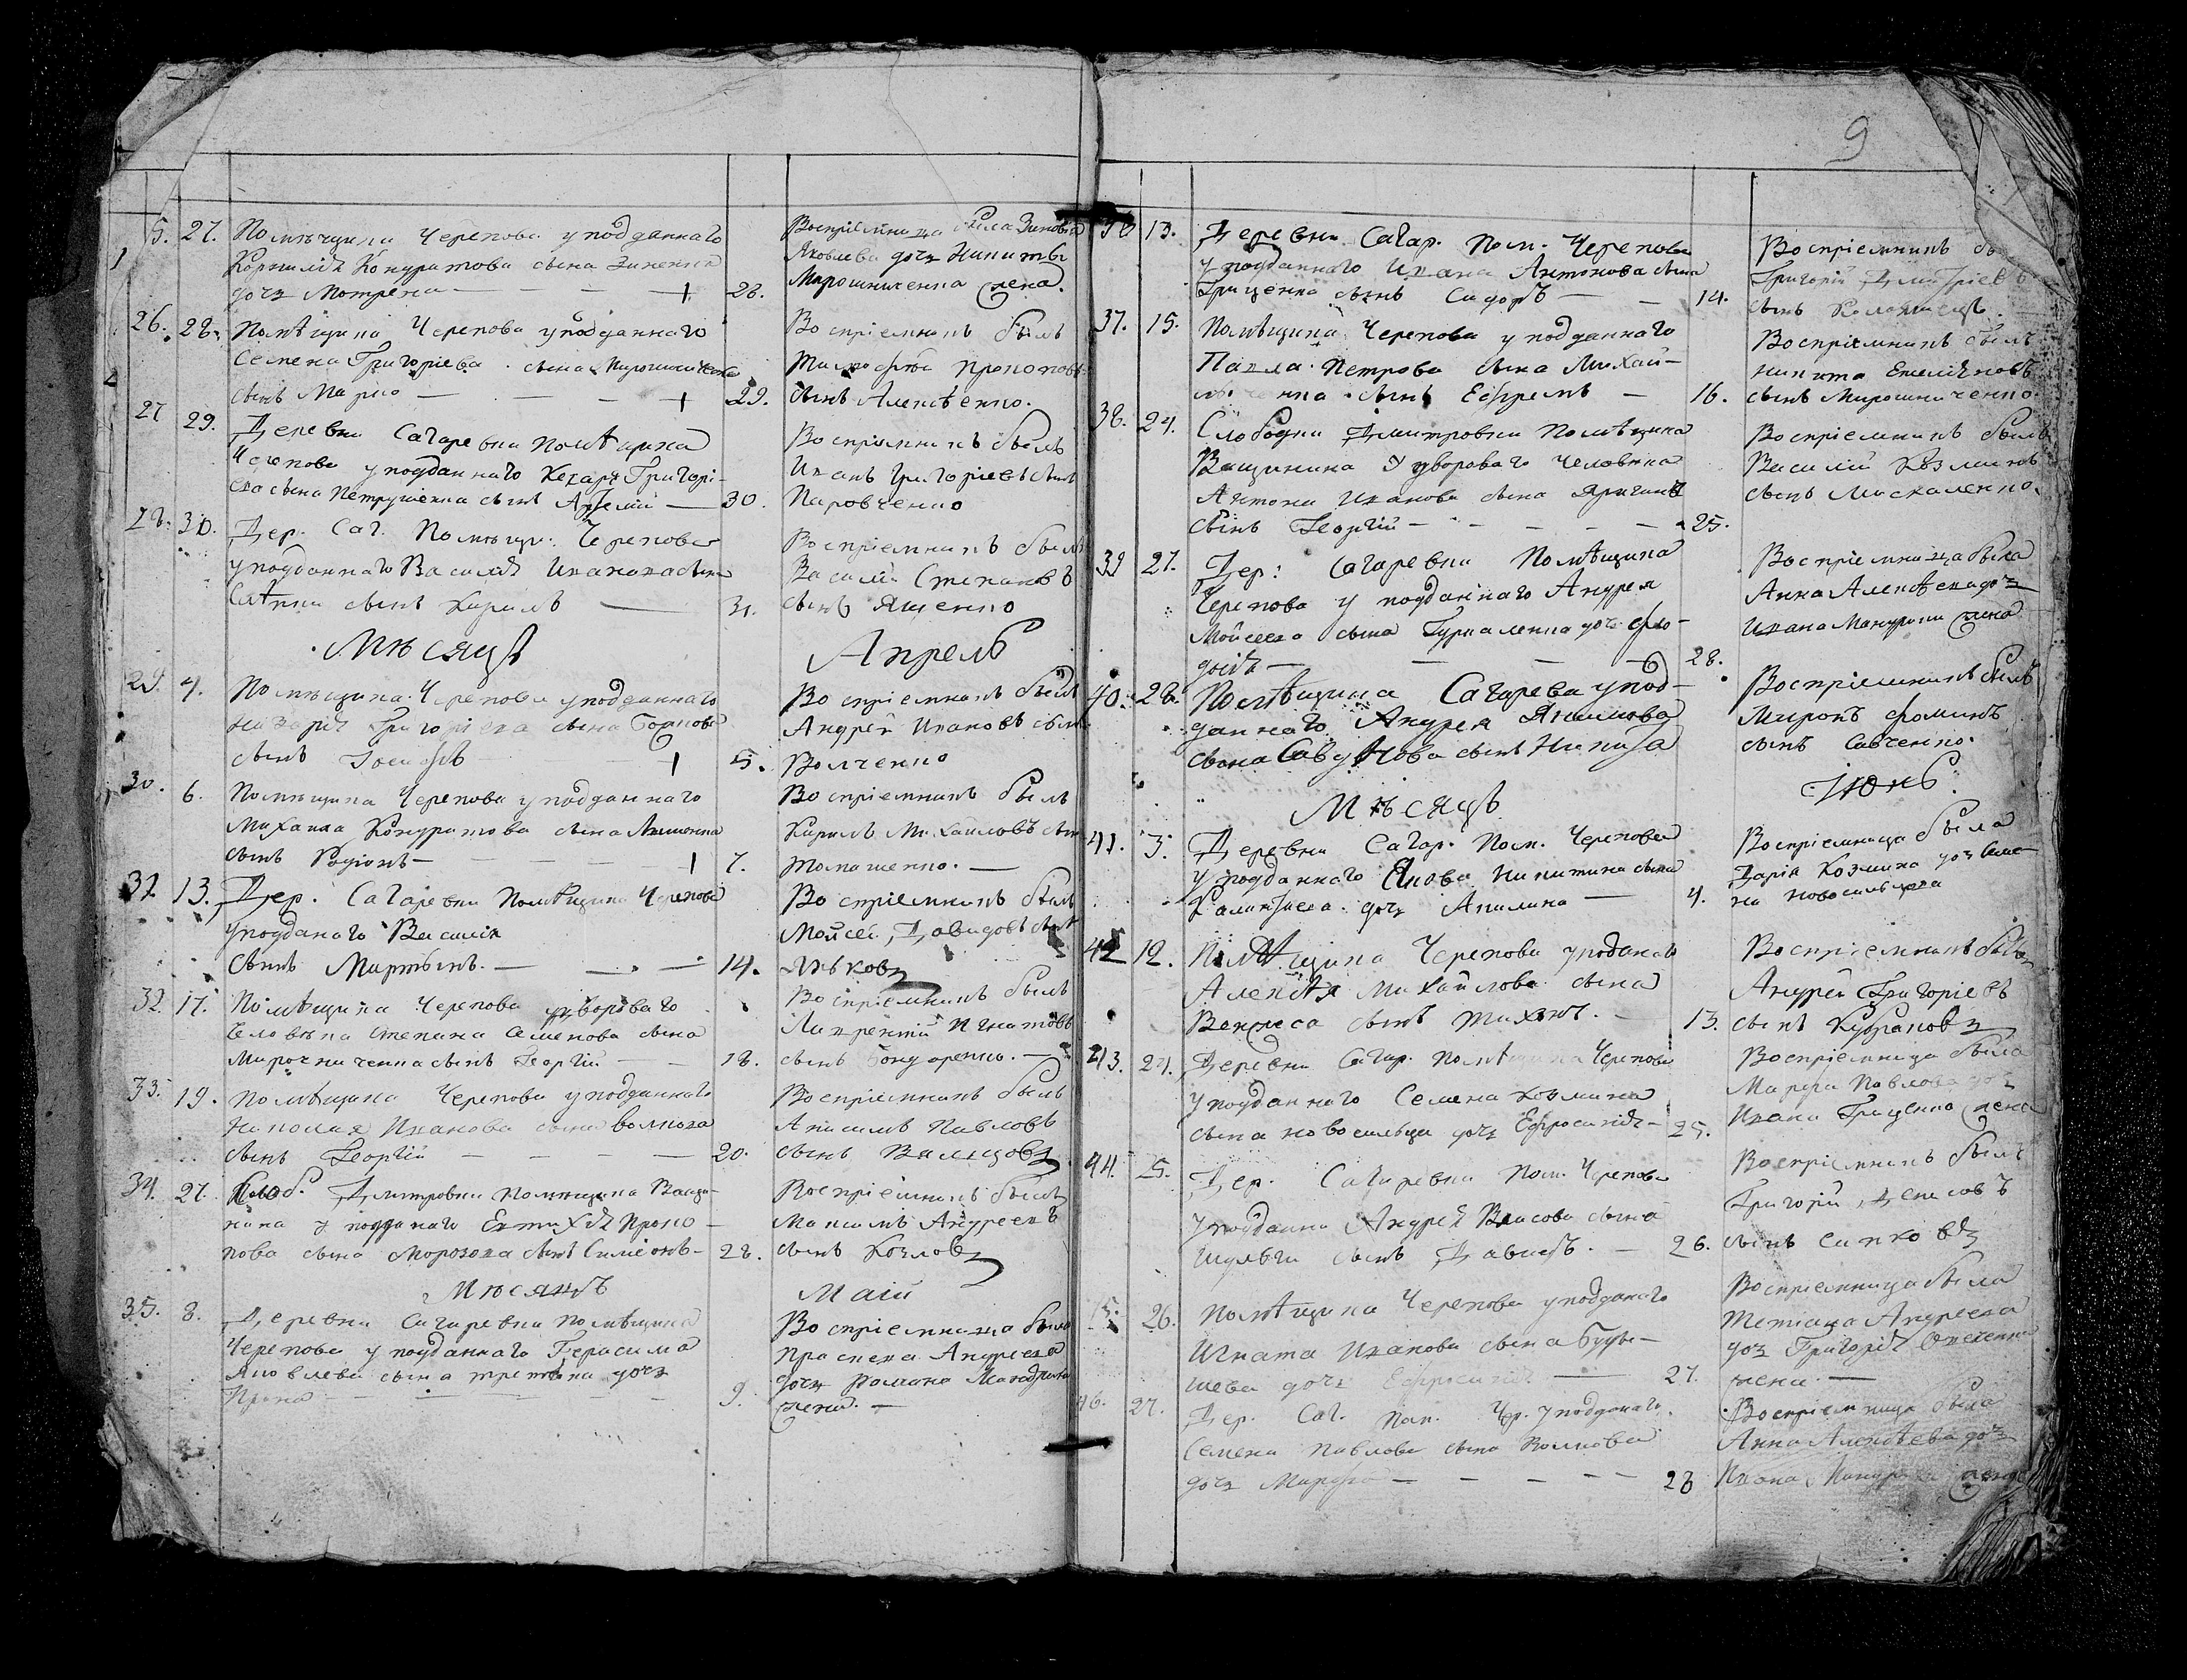 9
5. 27. Помѣщика Черепова у подданнаго
Корнилія Кондратова сына Зиненка
дочъ Мотрена — 28.
Воспріемница была Зиновія
Яковлева дочъ Никиты
Мирошниченка жена.
26. 28. Помѣщика Черепова у подданнаго
Семена Григоріева сына Мирошниченка
сынъ Марко — 29.
Воспріемникъ былъ
Тимофѣй Прокоповъ
сынъ Алексѣенко.
27 29. Деревни Сагаревки помѣщика
Черепова у подданнаго Захарія Григорі-
ева сына Петрушенка сынъ — 30.
Воспріемникъ былъ
Иванъ Григоріевъ сынъ
Паровченко
28. 30. Дер. Саг. Помѣщи: Черепова
у подданнаго Василія Иванова сына
сынъ Кирилъ — 31.
Воспріемникъ былъ
Василій Степановъ
сынъ Ященко
Мѣсяцъ Апрель
29. 4. Помѣщика Черепова у подданнаго
Назарія Григоріева сына
сынъ Іосифъ 5.
Воспріемникъ былъ
Андрей Ивановъ сынъ
Волченко
30. 6. Помѣщика Черепова у подданнаго
Михаила Кондратова сына Акименка
сынъ Родіонъ — 7.
Воспріемникъ былъ
Кирилъ Михайловъ сынъ
Томашенко. —
13. Дер. Сагаревки Помѣщика Черепова
у подданаго Василія
сынъ Мартынъ. — 14.
Воспріемникъ былъ
Мойсей Давидовъ сынъ
Лѣковъ
32. 17. Помѣщика Черепова у двороваго
человѣка Степана Семенова сына
Мирочниченка сынъ Георгій — 18.
Воспріемникъ былъ
Лаврентій Игнатовъ
сынъ Бондаренко. —
33. 19. Помѣщика Черепова у подданнаго
Николая Иванова сына Волкова
сынъ Георгій — 20.
Воспріемникъ былъ
Анисимъ Павловъ
сынъ Вальцовъ
34. 27. Слоб. Дмитровки помѣщика Ващи-
нина у подданаго Евтихія Проко-
пова сына Морозова сынъ Симеонъ — 28.
Воспріемникъ былъ
Максимъ Андреевъ
сынъ Козловъ
Мѣсяцъ Маій
35. 8. Деревни Сагаревки помѣщика
Черепова у подданнаго Герасима
Яковлева сына дочъ
Ирина — 9.
Воспріемница была
Праскева Андреева
дочъ Романа
жена. —
36 13. Деревни Сагар. Пом. Черепова
у подданнаго Ивана Антонова сына
Гриценка сынъ Сидоръ — 14.
Воспріемникъ
Григорій Дмитріевъ
сынъ
37. 15. Помѣщика Черепова у подданнаго
Павла Петрова сына Михай-
сынъ Ефремъ — 16.
Воспріемникъ былъ
Никита Емеліяновъ
сынъ Мирошниченко.
38. 24. Слободки Дмитровки Помѣщика
Ващинина у двороваго человѣка
Антона Иванова сына
сынъ Георгій — 25.
Воспріемникъ былъ
Василій Козминъ
сынъ Москаленко.
39 27. Дер: Сагаревки Помѣщика
Черепова у подданнаго Андрея
Мойсеева сына дочъ Фео-
досія — 28.
Воспріемница была
Анна Алексѣева дочъ
Ивана жена
40. 28. Помѣщика Сагарева у под-
даннаго Андрея Якимова
сына сынъ Никита
Воспріемникъ былъ
Миронъ Фоминъ
сынъ Савченко.
Мѣсяцъ Іюнь.
41. 3. Деревни Сагар. Пом. Черепова
у подданнаго Якова Никитина сына
дочъ Акилина — 4.
Воспріемница была
Дарія Козмина дочъ
Новосильцова
42 12. Помѣщика Черепова у поданаго
Алексѣя Михайлова сына
сынъ Тихонъ. — 13.
Воспріемникъ былъ
Андрей Григоріевъ
сынъ
43. 24. Деревни Сагар. помѣщика Черепова
у подданнаго Семена Козмина
сына Новосильца дочъ Ефросинія — 25.
Воспріемница была
Марфа Павлова дочъ
Ивана Гриценко жена
44. 25. Дер. Сагаревки Пом. Черепова
у поддана Андрея Власова сына
Шульги сынъ Давидъ. — 26.
Воспріемникъ былъ
Григорій Денисовъ
сынъ
26. Помѣщика Черепова у подданаго
Игната Иванова сына
дочъ Ефросинія — 27.
Воспріемница была
Тетіана Андреева
дочъ Григорія
жена. —
46. 27. Дер. Саг. Пом. Чер. у подданаго
Семена Павлова сына Волкова
дочъ Марфа — 28
Воспріемница была
Анна Алексѣева дочъ
Ивана жена